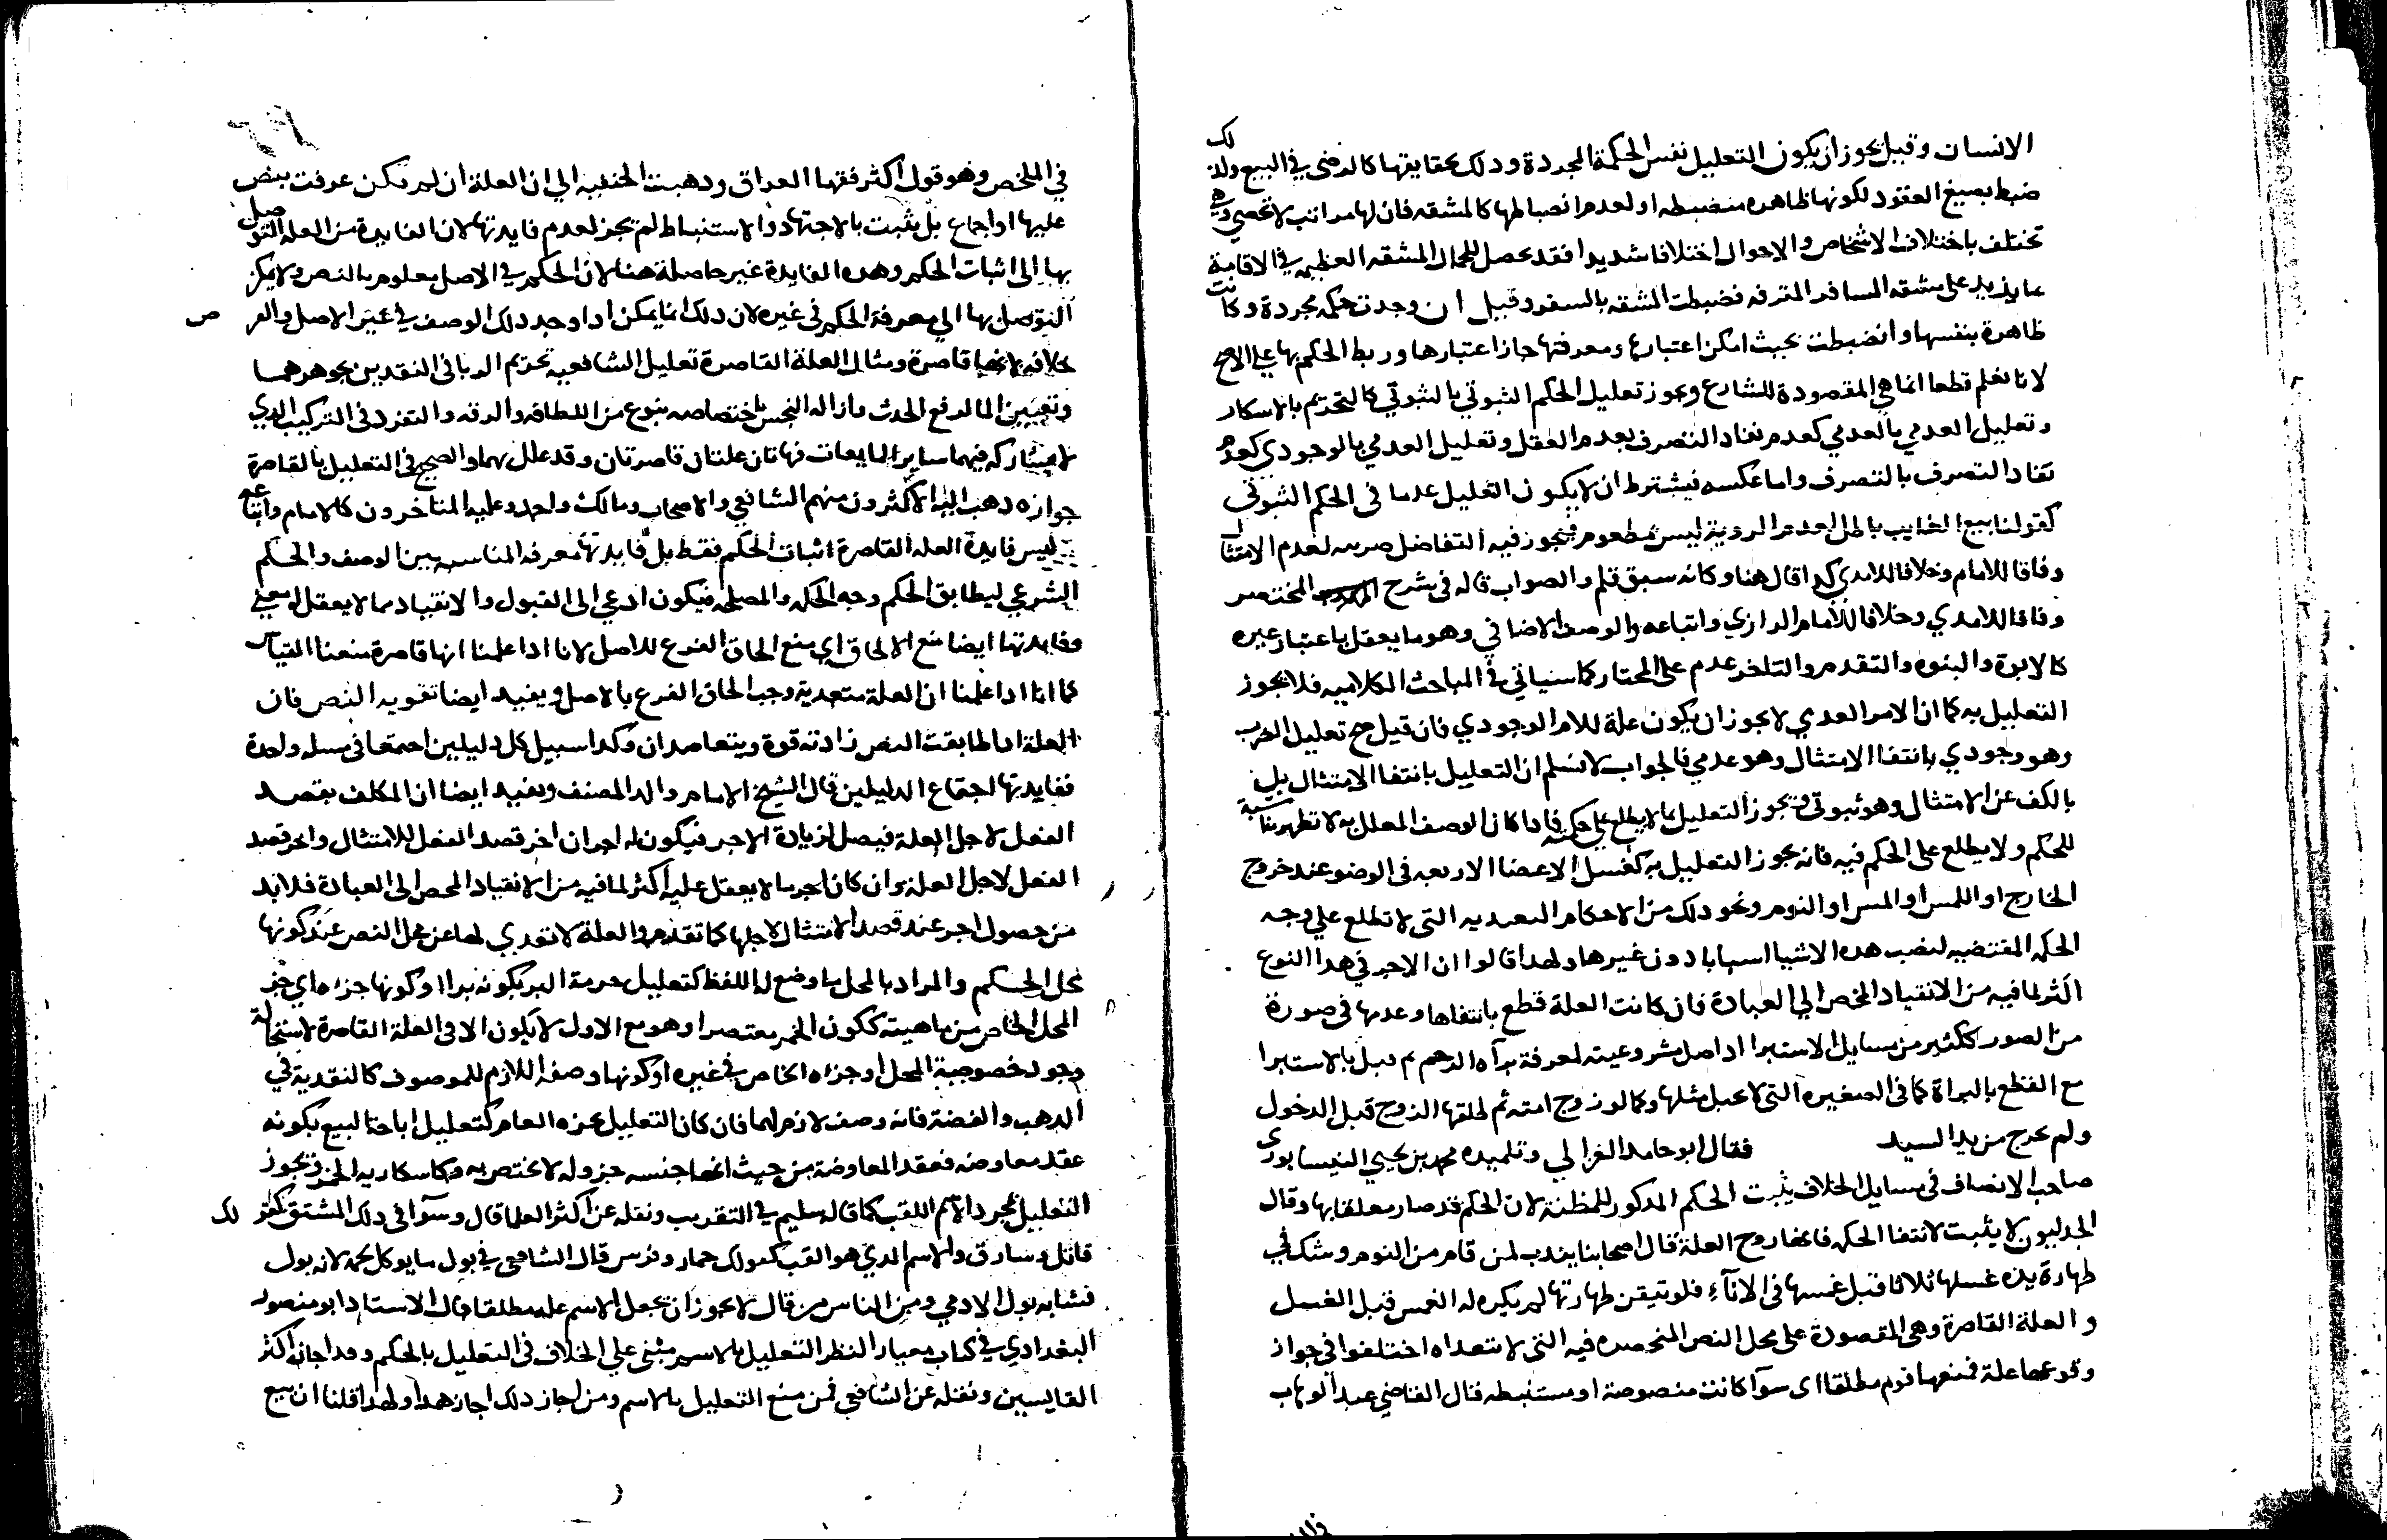 الانسان وقيل يجوز ان يكون التعليل نفس الحكمة المجردة ودلك بحقايقها كالرضى في البيع ولدلك
ضبط بصيغ العقود لكونها ظاهره منضبطه او لعدم انضباطها كالمشقه فان لها مراتب لا تحصى وهي
تختلف باختلاف الاشخاص والاحوال اختلافا شديدا فقد يحصل للحمال المشقه العظيمه في الاقامة
ما يزيد على مشقه المسافر المترفه فضبطت المشقه بالسفر وقيل ان وجدت حكمه مجردة وكانت
ظاهرة بنفسها وانضبطت بحيث امكن اعتبارها ومعرفتها جاز اعتبارها وربط الحكم بها على الاصح
لانا نعلم قطعا انها هي المقصودة للشارع ويجوز تعليل الحكم الثبوتي بالثبوتي كالتحريم بالاسكار
وتعليل العدمي بالعدمي كعدم نفاد التصرف بعدم العقل وتعليل العدمي بالوجودي كعدم
نفاد التصرف بالتصرف واما عكسه فيشترط ان لا يكون التعليل عدما في الحكم الثبوتي
كقولنا بيع الغايب باطل لعدم الروية ليس بمطعوم فيجوز فيه التفاضل ضربه لعدم الامتثال
وفاقا للامام وخلافا للامدي كدا قال هنا وكانه سبق قلم والصواب قاله في شرح المختصر
وفاقا للامدي وخلافا للامام الرازي واتباعه والوصف الاضافي وهو ما يعقل باعتبار غيره
كالابوة والبنوه والتقدم والتاخر عدم على المختار كما سياتي في المباحث الكلاميه فلا يجوز
التعليل به كما ان الامر العدمي لا يجوز ان يكون علة للامر الوجودي فان قيل صح تعليل الضرب
وهو وجودي بانتفا الامتثال وهو عدمي فالجواب لا نسلم ان التعليل بانتفا الامتثال بل
بالكف عن الامتثال وهو ثبوتي ويجوز التعليل بما لا يطلع على حكمته فادا كان الوصف المعلل به لا تظهر مناسبة
للحكم ولا يطلع على الحكم فيه فانه يجوز التعليل به كغسل الاعضا الاربعه في الوضو عند خروج
الخارج او اللمس او المس او النوم ونحو دلك من الاحكام التعبديه التي لا تطلع على وجه
الحكه المقتضيه لنصب هده الاشيا اسبابا دون غيرها ولهدا قالوا ان الاجر في هدا النوع
اكثر لما فيه من الانقياد المحض الى العبادة فان كانت العلة قطع بانتفاها وعدمها في صورة
من الصور ككثير من مسايل الاستبرا اد اصل مشروعيته لمعرفة براه الرحم ثم قيل بالاستبرا
مع القطع بالبراة كما في الصغيره التي لا تحبل مثلها وكما لو زوج امته ثم طلقها الزوج قبل الدخول
ولم تخرج من يد السيد فقال ابو حامد الغزالي وتلميده محمد بن يحيى النيسابوري
صاحب الانصاف في مسايل الخلاف يثبت الحكم المدكور للمظنة لان الحكم قد صار معلقا بها وقال
الجدليون لا يثبت لانتفا الحكه فانها روح العلة قال اصحابنا يندب لمن قام من النوم وشك في
طهارة يده غسلها ثلاثا قبل غمسها في الاناء فلو تيقن طهارتها لم يكره له الغمس قبل الغسل
والعلة القاصرة وهي المقصورة على محل النص المنحصره فيه التي لا تتعداه اختلفوا في جواز
وقوعها علة فمنعها قوم مطلقا اى سوا كانت منصوصة او مستنبطه قال القاضي عبد الوهاب
في الملخص وهو قول اكثر فقها العراق ودهبت الحنفيه الي ان العلة ان لم تكن عرفت بنص
عليها او اجماع بل يثبت بالاجتهاد والاستنباط لم تجز لعدم فايدتها لان الفايدة من العله التوصل
بها الى اثبات الحكم وهده الفايدة غير حاصلة هنا لان الحكم في الاصل معلوم بالنص ولا يمكن
التوصل بها الي معرفة الحكم في غيره لان دلك انما يمكن ادا وجد دلك الوصف في غير الاصل والفر ص
خلافه لانها قاصرة ومثال العلة القاصرة تعليل الشافعيه تحريم الربا في النقدين بجوهرهما
وتعيين الما لرفع الحدث وازاله النجس باختصاصه بنوع من اللطافه والرقه والتفرد في التركيب الدي
لا يشاركه فيهما ساير المايعات فهاتان علتان قاصرتان وقد علل بهما والصحيح في التعليل بالقاصرة
جوازه دهب اليه الاكثرون منهم الشافعي والاصحاب ومالك واحمد وعليه المتاخرون كالامام واتباعه
ليس فايدة العله القاصرة اثبات الحكم فقط بل فايدتها معرفه المناسبه بين الوصف والحكم
الشرعي ليطابق الحكم وجه الحكه والمصلحه فيكون ادعي الى القبول والانقياد مما لا يعقل له معنى
وفايدتها ايضا منع الالحاق اي منع الحاق الفرع للاصل لانا ادا علمنا انها قاصرة منعنا القياس
كما انا ادا علمنا ان العلة متعدية وجب الحاق الفرع بالاصل ويفيد ايضا تقويه النص فان
العلة ادا طابقت النص زادته قوة ويتعاضدان وكدا سبيل كل دليلين اجتمعا في مسله واحدة
ففايدتها اجتماع الدليلين قال الشيخ الامام والد المصنف ويفيد ايضا ان المكلف يقصد
الفعل لاجل العلة فيصل لزيادة الاجر فيكون له اجران اخر قصد الفعل للامتثال واخر قصد
الفعل لاجل العلة وان كان اجر ما لا يعقل عليه اكثر لما فيه من الانقياد المحض الى العبادة فلا بد
من حصول اجر عند قصد الامتثال لاجلها كما تقدم والعلة لا تعدي لها عن محل النص عند كونها
محل الحكم والمراد بالمحل ما وضع له اللفظ كتعليل حرمة البر بكونه برا او كونها جزءه اي جز
المحل الخاص من ماهيته ككون الخمر معتصرا وهو مع الاول لا يكون الا في العلة القاصرة لاستحالة
وجود خصوصية المحل او جزءه الخاص في غيره او كونها وصفه اللازم للموصوف كالنقدية في
الدهب والفضة فانه وصف لازم لهما فان كان التعليل بجزه العام كتعليل اباحة البيع بكونه
عقد معاوضه فعقد المعاوضة من حيث انها جنسه جزو له لا يختص به وكاسكاريه الخمر ويجوز
التعليل بمجرد الاسم اللقب كما قاله سليم في التقريب ونقله عن اكثر العلما قال وسوا في دلك المشتق كقو لك
قاتل وسارق والاسم الدي هو القب كقولك حمار وفرس قال الشافعي في بول ما يوكل لحمه لانه بول
فشابه بول الادمي ومن الناس من قال لا يجوز ان يجعل الاسم علة مطلقا وقال الاستاد ابو منصور
البغدادي في كتاب معيار النظر التعليل بالاسم مبني علي الخلاف في التعليل بالحكم وقد اجازه اكثر
القايسين ونقله عن الشافعي فمن منع التعليل بالاسم ومن اجاز دلك اجاز هدا ولهدا قلنا ان بيع